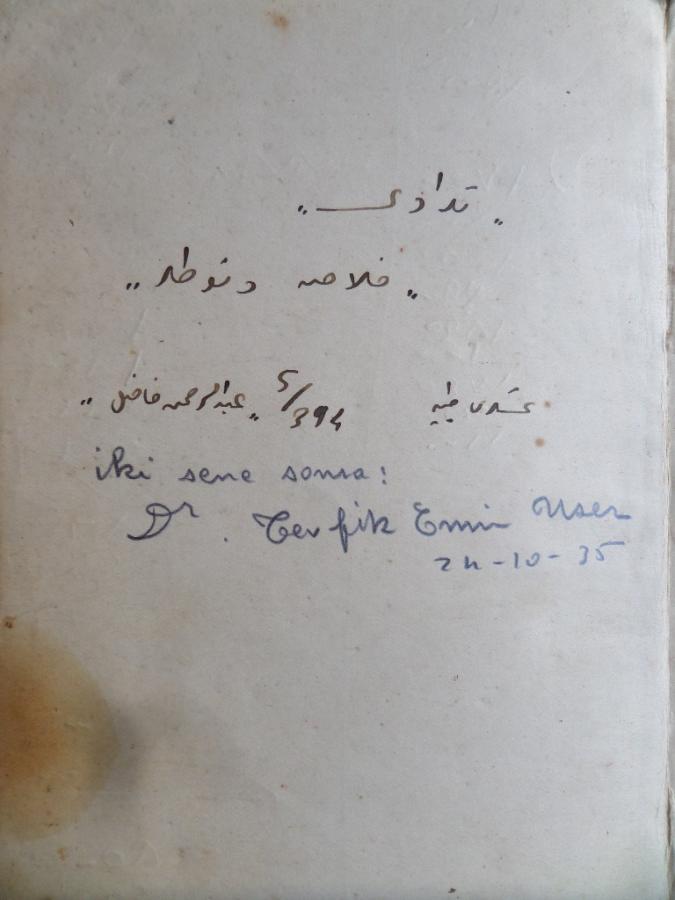 „ تداوی „
„ خلاصه و نوطلر „
عسكری طبیه 5/394 „ عبدالرحمن فاضل „
iki sene sonra:
Dr. Tevfik Emin User
24-10-35